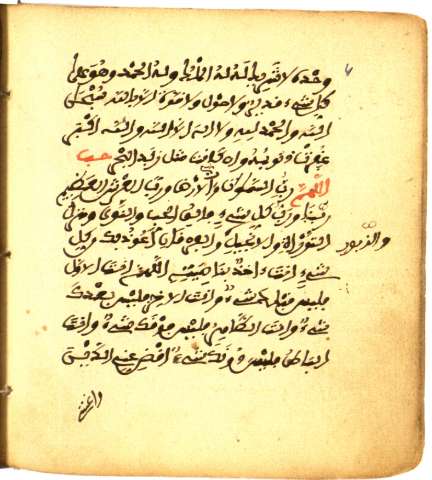 وحده لا شريك له له الملك وله الحمد وهو على
كل شيء قدير ولا حول ولا قوة الا بالله سبحان
الله والحمد لله ولا اله الا الله والله اكبر
غفرت ذنوبه كانت مثل زبد البحر حب
اللهم رب السموات والارض ورب العرش العظيم
ربنا ورب كل شيء فالق الحب والنوى ومنزل
التوراة والانجيل والفرقان أعوذ بك كل
والزبور
شيء انت ءاخذ بناصيته اللهم انت الاول
فليس قبلك شيء وانت الاخر فليس بعدك
شيء وانت الظاهر فليس فوقك شيء وانت
الباطن فليس دونك شيء اقض عني الدين
واغنني